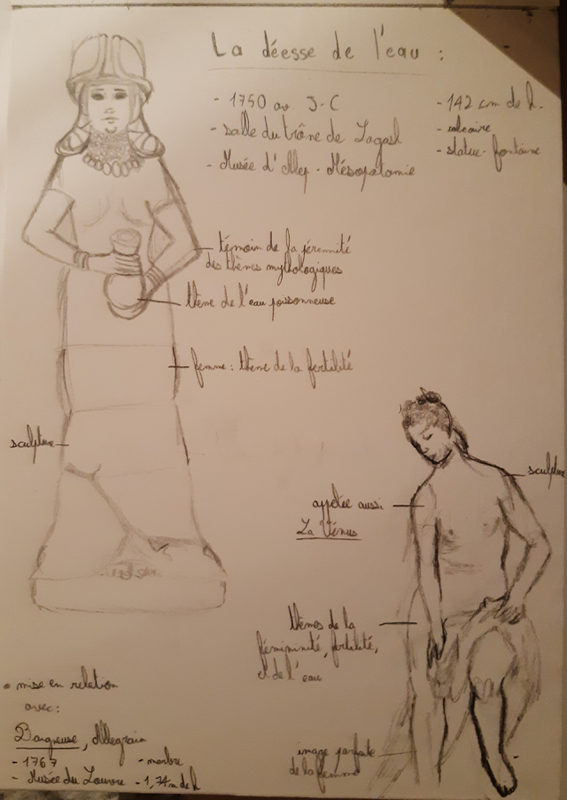 La déesse de l'eau :
- 1750 av. J-C
- salle du trône de Lagash
- Musée d'Alep - Mésopotamie
- 142 cm de h.
- calcaire
- statue-fontaine
témoin de la pérennité
des thèmes mythologiques
thème de l'eau poissonneuse
femme : thème de la fertilité
sculpture
sculpture
appelée aussi
La Vénus
thèmes de la
fémininité, fertilité,
et de l'eau
image parfaite
de la femme
• mise en relation
avec :
Baigneuse, Allegrain
- 1767
- Musée du Louvre
- marbre
- 1,74m de h